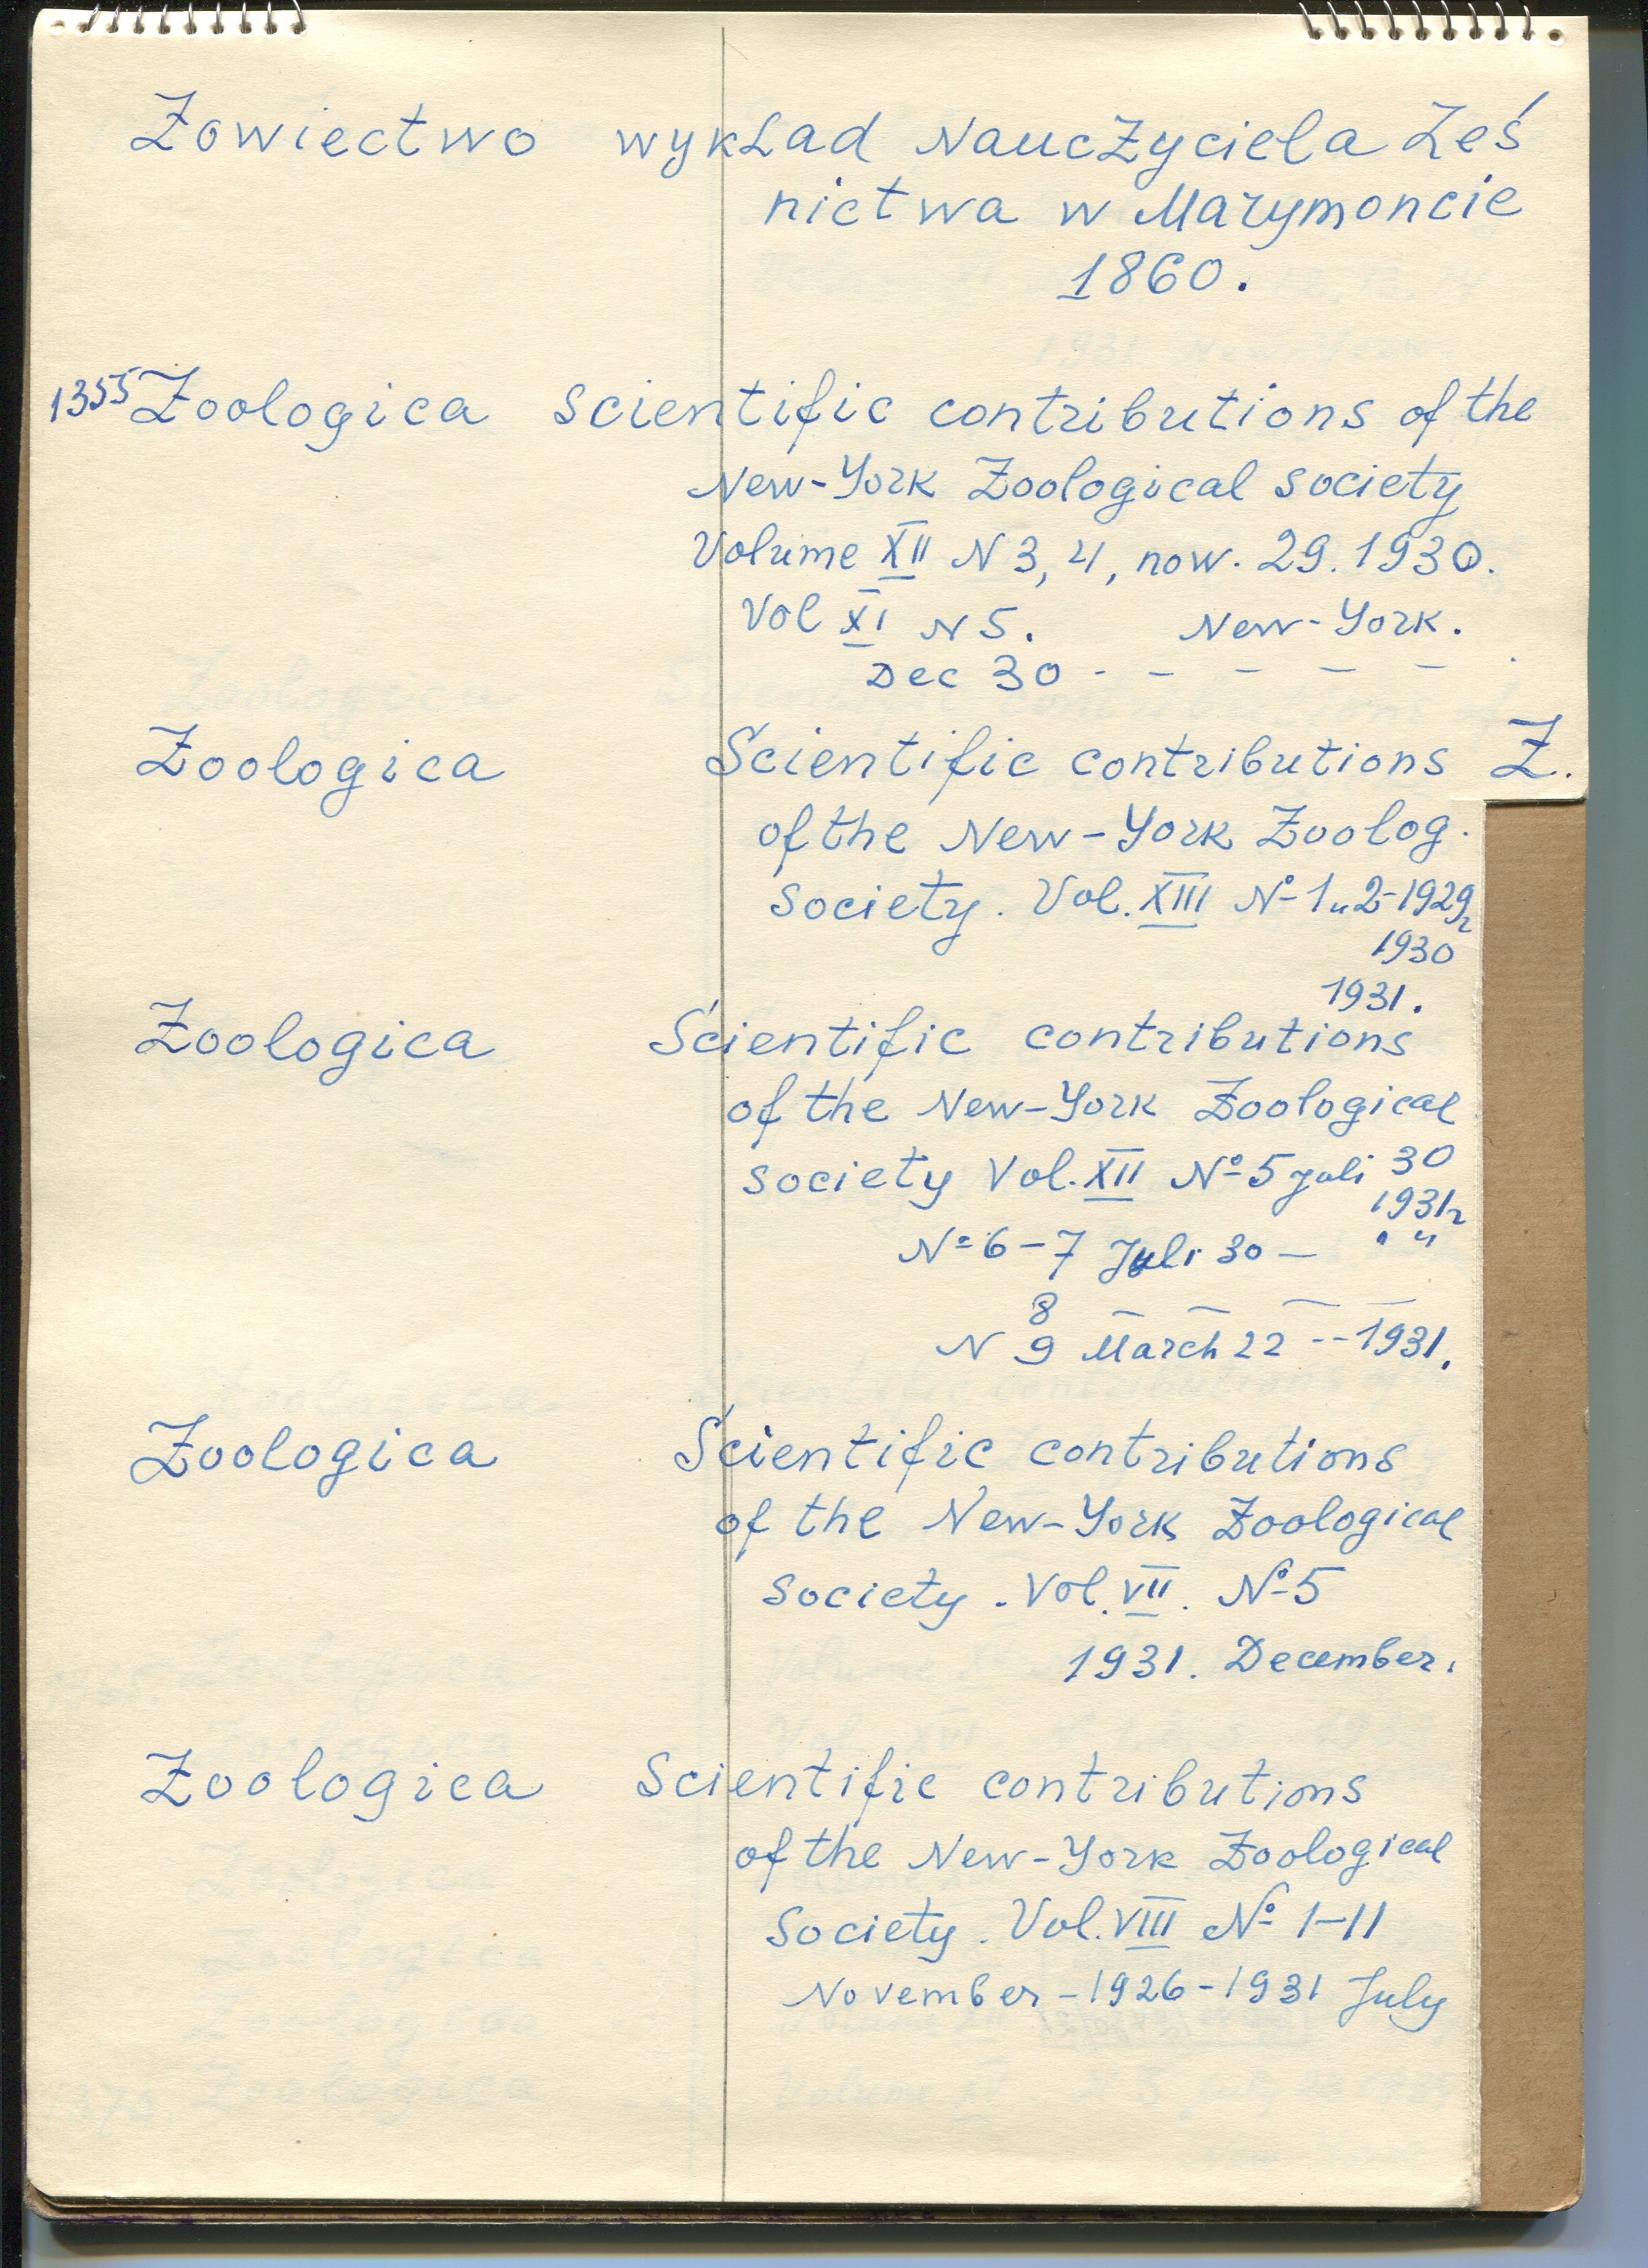 Zowiectwo wykład Nauczyciela Leś
nictwa w Marymoncie
1860.
1355 Zoologica scientific contributions of the
New-York Zoological society
Volume XII N 3, 4, now. 29. 1930.
Vol XI N 5. New-York.
Dec 30 - - - - -
Zoologica Scientific contributions Z.
of the New-York Zoolog.
society. Vol. XIII № 1 и 2-1929г
1930
1931.
Zoologica Scientific contributions
of the New-York Zoological
society Vol. XII № 5 Juli 30
1931г
№ 6-7 Juli 30 — " "
8 — — — —
N 9 March 22 -- 1931.
Zoologica Scientific contributions
of the New-York Zoological
society. Vol. VII. № 5
1931. December.
Zoologica Scientific contributions
of the New-York Zoological
Society. Vol. VIII № 1-11
November - 1926 - 1931 July